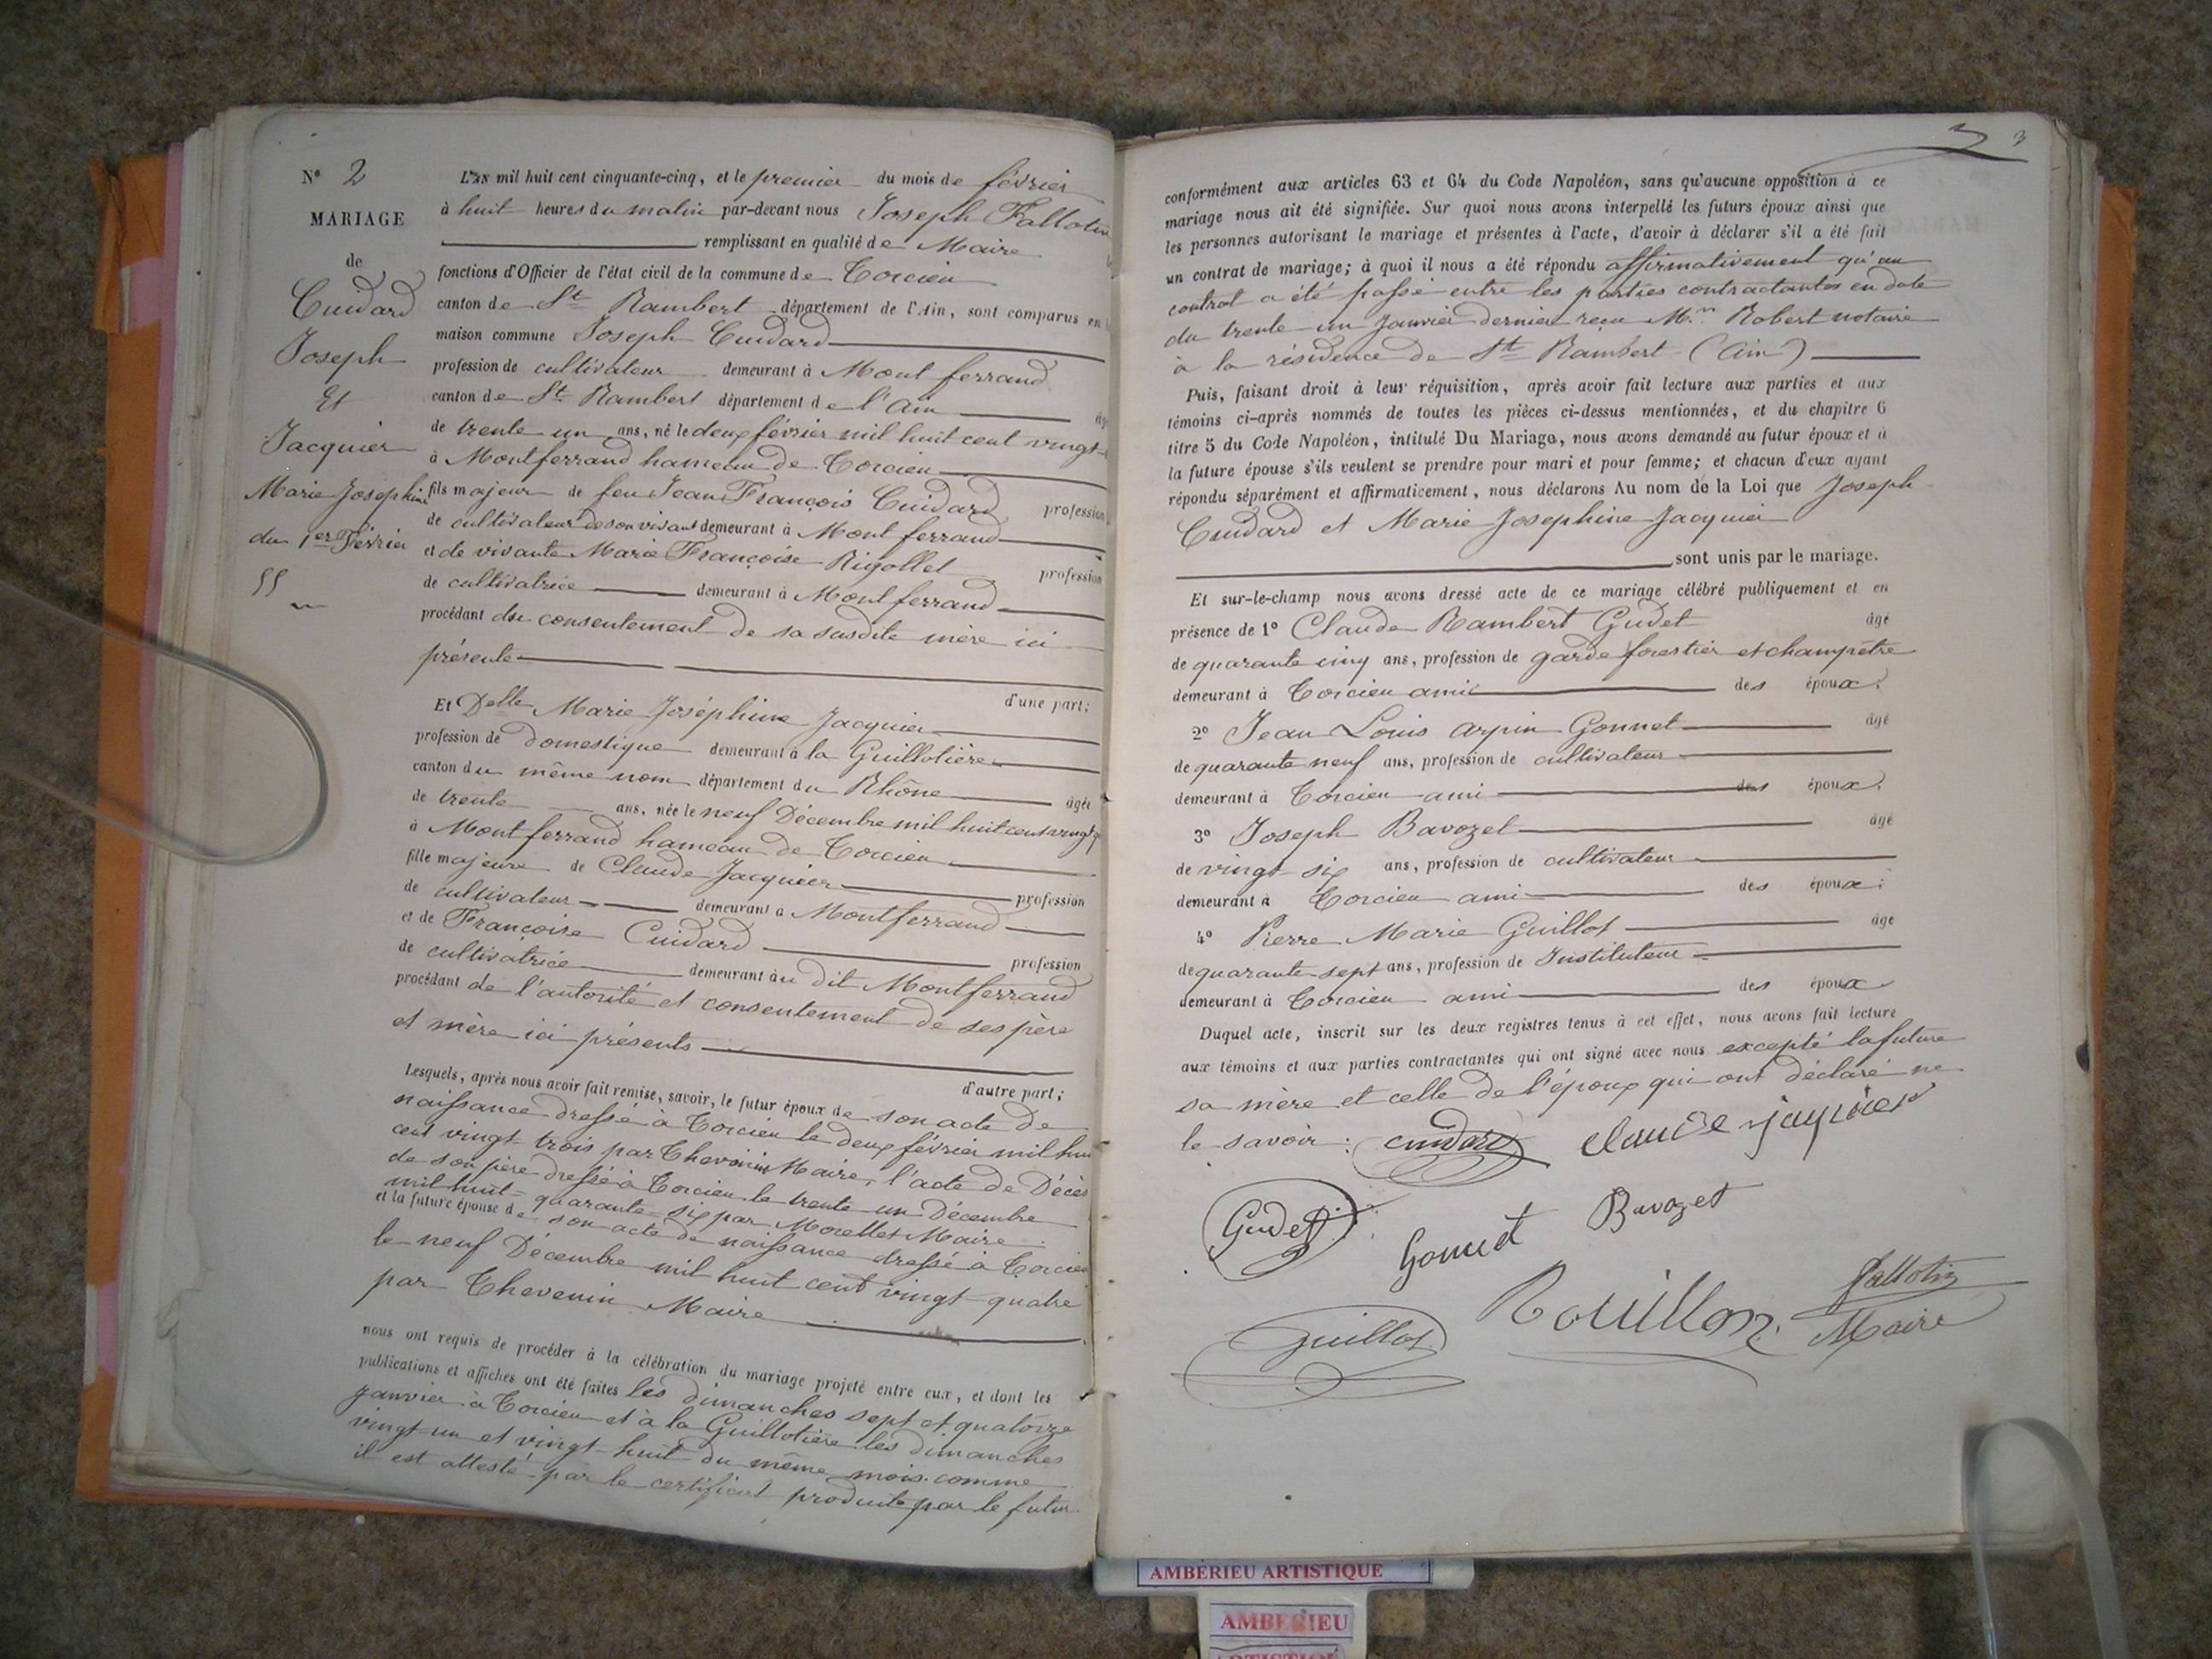 Nº 2
MARIAGE
de
Cuidard
Joseph
Et
Jacquier
Marie Josephine
du 1er Février
55
L'AN mil huit cent cinquante-cinq, et le premier du mois de février
à huit heures du matin par-devant nous Joseph Fallotin
remplissant en qualité de Maire
fonctions d'Officier de l'état civil de la commune de Torcieu
canton de St Rambert département de l'Ain, sont comparus en
maison commune Joseph Cuidard
profession de cultivateur demeurant à Mont ferrand
canton de St Rambert département de l'Ain
de trente un ans, né le deux février mil huit cent vingt
à Montferrand hameau de Torcieu
fils majeur de feu Jean François Cuidard profession
de cultivateur de son vivant demeurant à Mont ferrand
et de vivante Marie Françoise Rigollet profession
de cultivatrice demeurant à Mont ferrand
procédant du consentement de sa susdite mère ici
présente
d'une part;
Et Delle Marie Joséphine Jacquier
profession de Domestique demeurant à la Guillotière
canton du même nom département du Rhône âgée
de trente ans, née le neuf Décembre mil huit cent vingt
à Mont ferrand hameau de Torcieu
fille majeure de Claude Jacquier profession
de cultivateur demeurant à Montferrand
et de Françoise Cuidard profession
de cultivatrice demeurant àu dit Montferrand
procédant de l'autorité et consentement de ses père
et mère ici présents
d'autre part;
Lesquels, après nous avoir fait remise, savoir, le futur époux de son acte de
naissance dressé à Torcieu le deux février mil hui
cent vingt trois par Thevenin Maire, l'acte de Décès
de son père dressé à Torcieu le trente un Décembre
mil huit = quarante-six par Morellet Maire
et la future épouse de son acte de naissance dressé à Torcieu
le neuf Décembre mil huit cent vingt-quatre
par Thevenin Maire
nous ont requis de procéder à la célébration du mariage projeté entre eux, et dont les
publications et affiches ont été faites les dimanches sept et quatorze
janvier à Torcieu et à la Guillotière les dimanches
vingt-un et vingt-huit du même mois comme
il est attesté par le certificat produit par le futur
3
conformément aux articles 63 et 64 du Code Napoléon, sans qu'aucune opposition à ce
mariage nous ait été signifiée. Sur quoi nous avons interpellé les futurs époux ainsi que
les personnes autorisant le mariage et présentes à l'acte, d'avoir à déclarer s'il a été fait
un contrat de mariage; à quoi il nous a été répondu affirmativement qu'un
contrat a été passé entre les parties contractantes en date
du trente-un Janvier dernier reçu M.e Robert notaire
à la résidence de St Rambert (Ain)
Puis, faisant droit à leur réquisition, après avoir fait lecture aux parties et aux
témoins ci-après nommés de toutes les pièces ci-dessus mentionnées, et du chapitre 6
titre 5 du Code Napoléon, intitulé Du Mariage, nous avons demandé au futur époux et à
la future épouse s'ils veulent se prendre pour mari et pour femme; et chacun d'eux ayant
répondu séparément et affirmativement, nous déclarons Au nom de la Loi que Joseph
Cuidard et Marie Josephine Jacquier
sont unis par le mariage.
Et sur-le-champ nous avons dressé acte de ce mariage célébré publiquement et en
présence de 1º Claude Rambert Gudet âgé
de quarante cinq ans, profession de garde forestier et champêtre
demeurant à Torcieu ami des époux;
2º Jean Louis Arpin Gonnet âgé
de quarante neuf ans, profession de cultivateur
demeurant à Torcieu ami des époux;
3º Joseph Bavozet âgé
de vingt six ans, profession de cultivateur
demeurant à Torcieu ami des époux;
4º Pierre Marie Guillot âgé
de quarante-sept ans, profession de Instituteur
demeurant à Torcieu ami des époux
Duquel acte, inscrit sur les deux registres tenus à cet effet, nous avons fait lecture
aux témoins et aux parties contractantes qui ont signé avec nous excepté la future
sa mère et celle de l'époux qui ont déclaré ne
le savoir:
cuidard
claude jaquier
Gudet
Gonnet
Bavozet
Guillot
Rouillon
Fallotin
Maire
AMBERIEU ARTISTIQUE
AMBERIEU
ARTISTIQUE